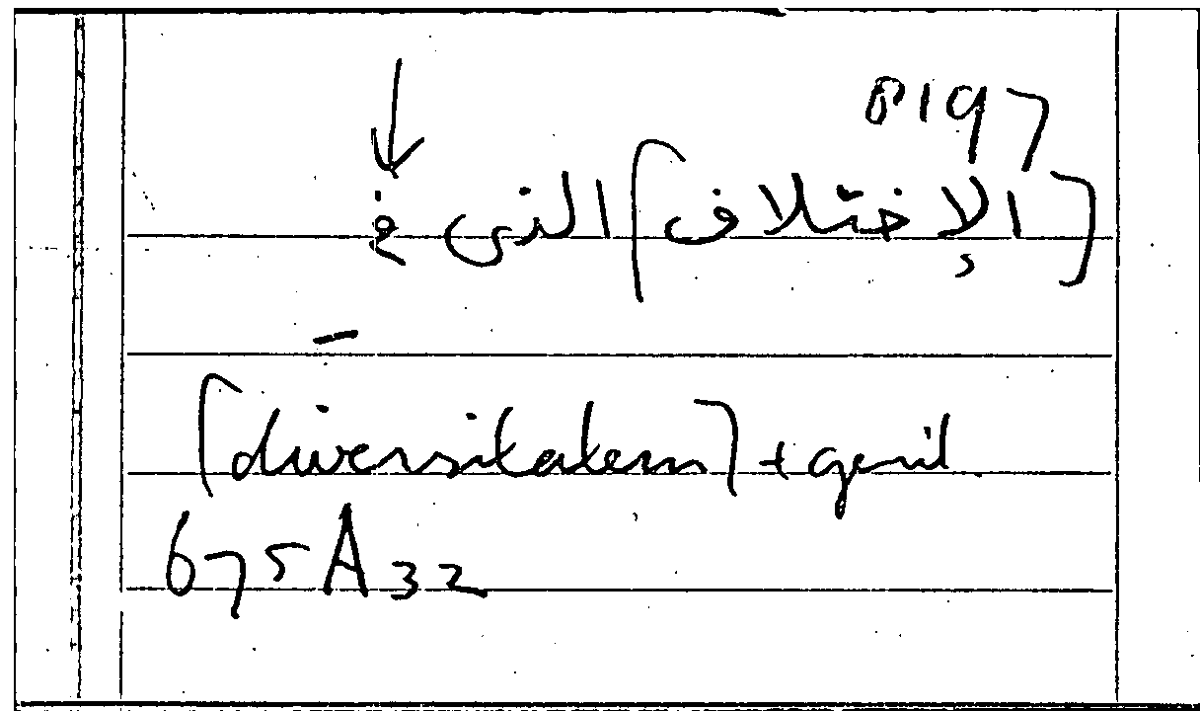 8197
[الإختلاف] الذى فى
[diversitatem] + genit.
675 A 32